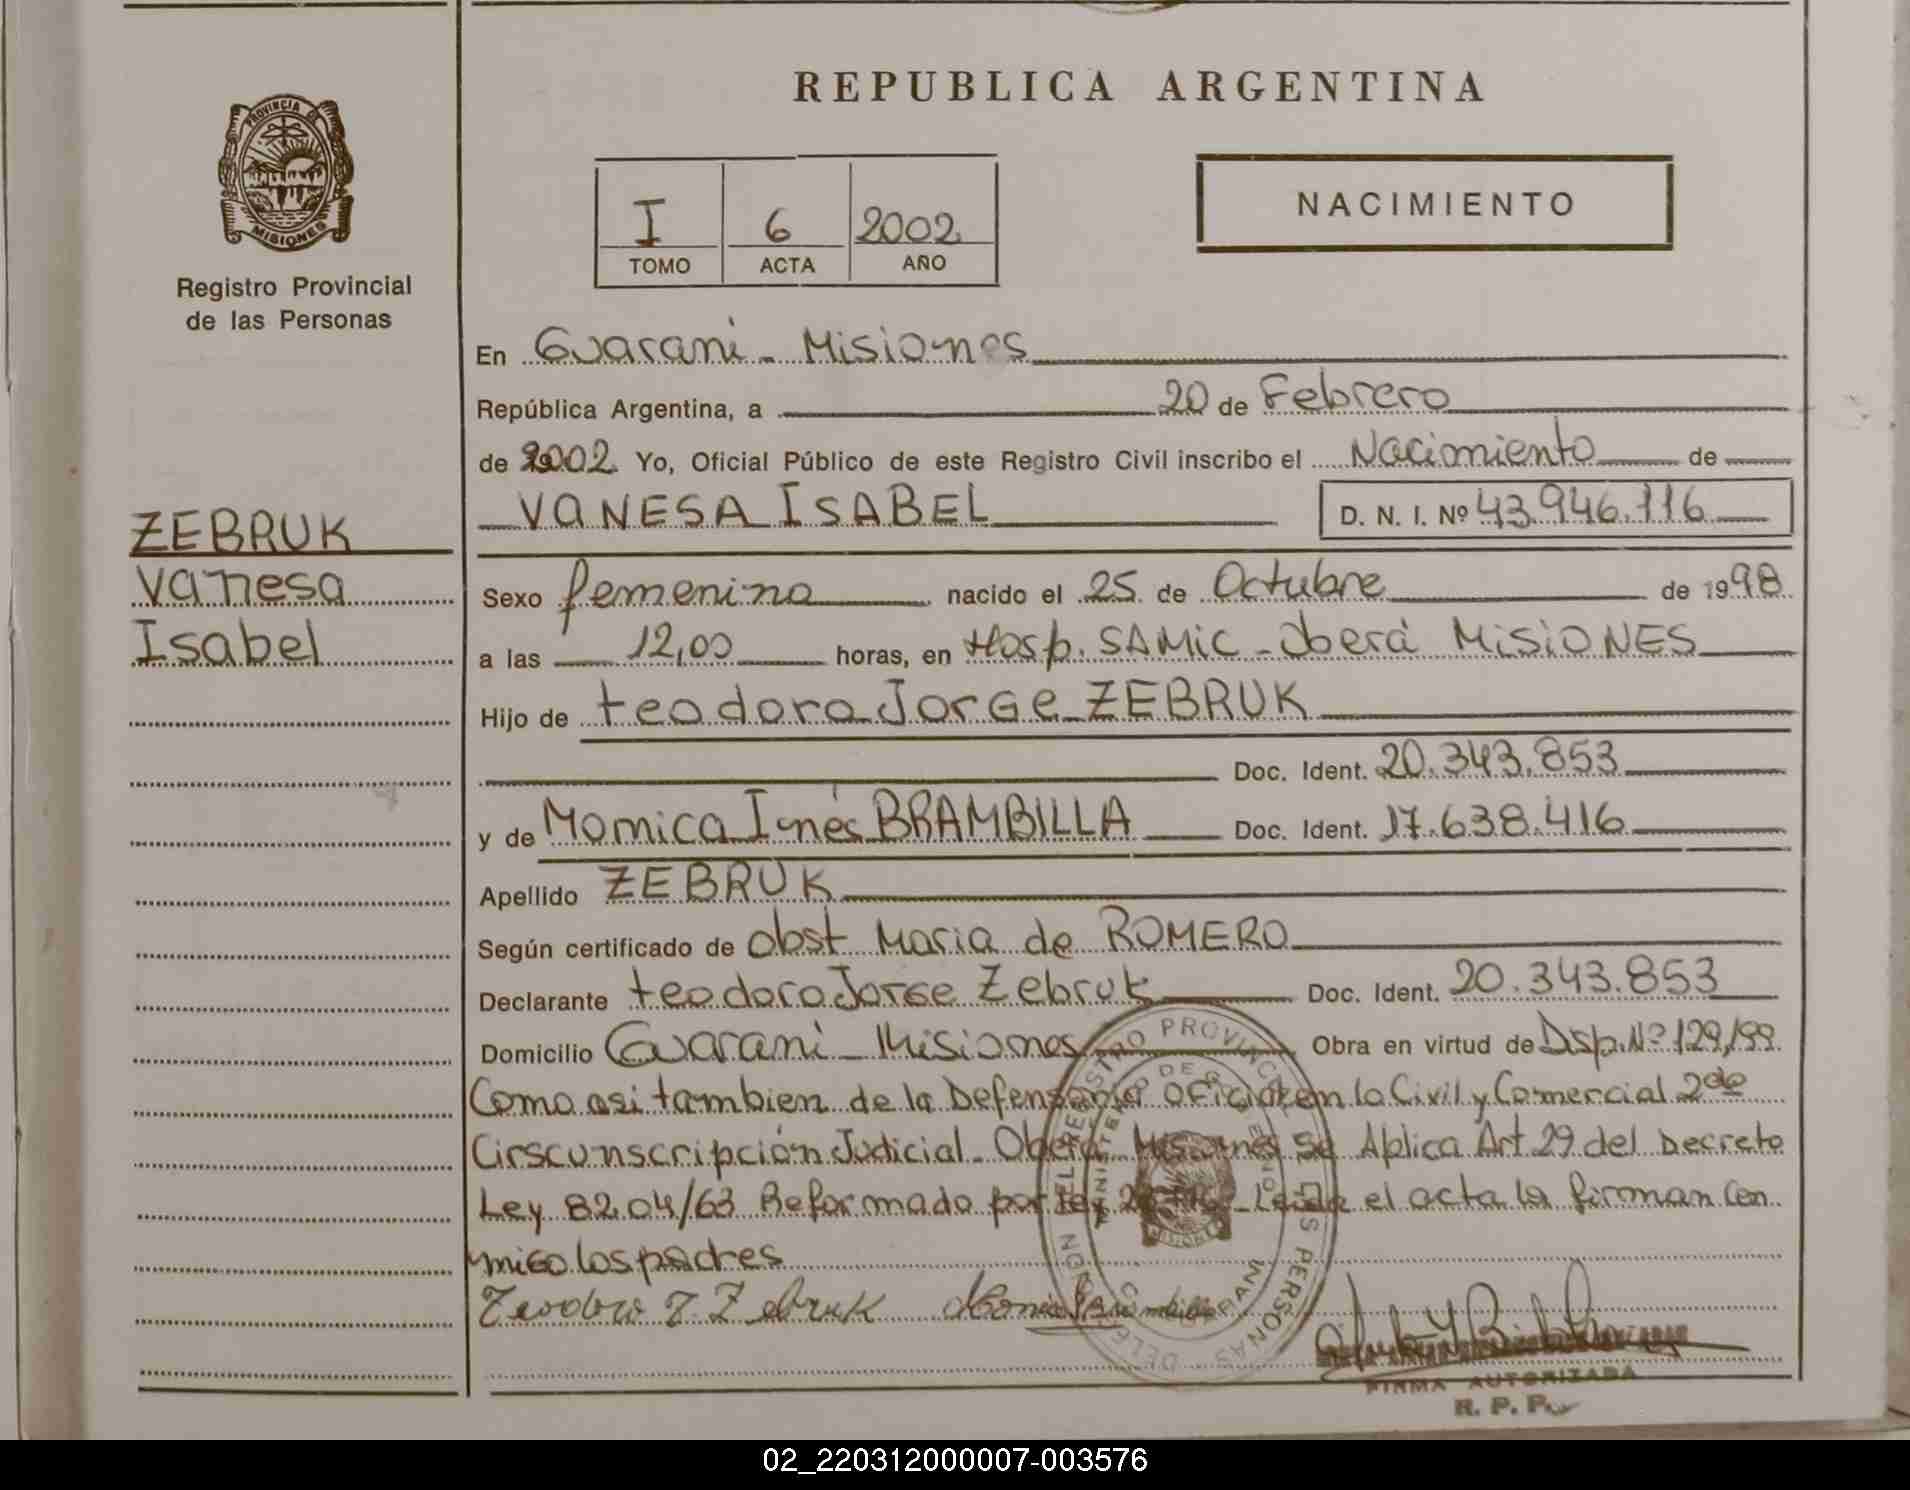 REPUBLICA ARGENTINA
PROVINCIA DE
MISIONES
Registro Provincial
de las Personas
I 6 2002
TOMO ACTA AÑO
NACIMIENTO
En Guaraní - Misiones
República Argentina, a 20 de Febrero
de 2002 Yo, Oficial Público de este Registro Civil inscribo el Nacimiento de
VANESA ISABEL D. N. I. Nº 43.946.116
ZEBRUK
Vanesa
Isabel
Sexo femenino nacido el 25 de Octubre de 1998
a las 12,00 horas, en Hosp. SAMIC - Oberá MISIONES
Hijo de teodoro Jorge ZEBRUK
Doc. Ident. 20.343.853
y de Monica Inés BRAMBILLA Doc. Ident. 17.638.416
Apellido ZEBRUK
Según certificado de obst Maria de ROMERO
Declarante teodoro Jorge Zebruk Doc. Ident. 20.343.853
Domicilio Guaraní - Misiones Obra en virtud de Disp. Nº 129/99
Como asi tambien de la Defensoria Oficial en lo Civil y Comercial 2da
Cirscunscripción Judicial - Oberá Misiones Se Aplica Art 29 del Decreto
Ley 8204/63 Reformado por Ley Leida el acta la firman Con
migo los padres
Teodoro J. Zebruk Monica Brambilla
FIRMA AUTORIZADA
R. P. P.
02_220312000007-003576